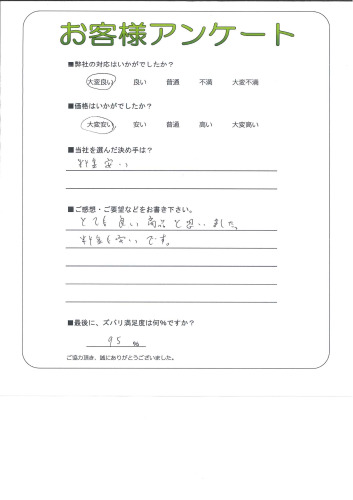 お客様アンケート
■弊社の対応はいかがでしたか？
大変良い 良い 普通 不満 大変不満
■価格はいかがでしたか？
大変安い 安い 普通 高い 大変高い
■当社を選んだ決め手は？
料金安い
■ご感想・ご要望などをお書き下さい。
とても良い商品と思いました。
料金も安いです。
■最後に、ズバリ満足度は何%ですか？
95 %
ご協力頂き、誠にありがとうございました。